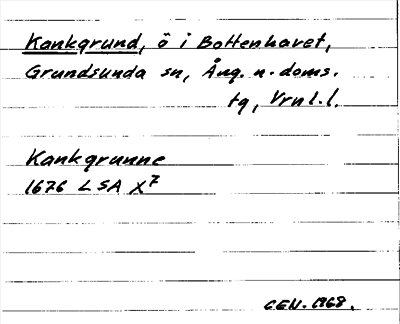 Kankgrund, ö i Bottenhavet,
Grundsunda sn, Ång. n. doms.
tg, Vrnl. l.
Kankgrunne
1676 LSA X7
CEN. 1968.